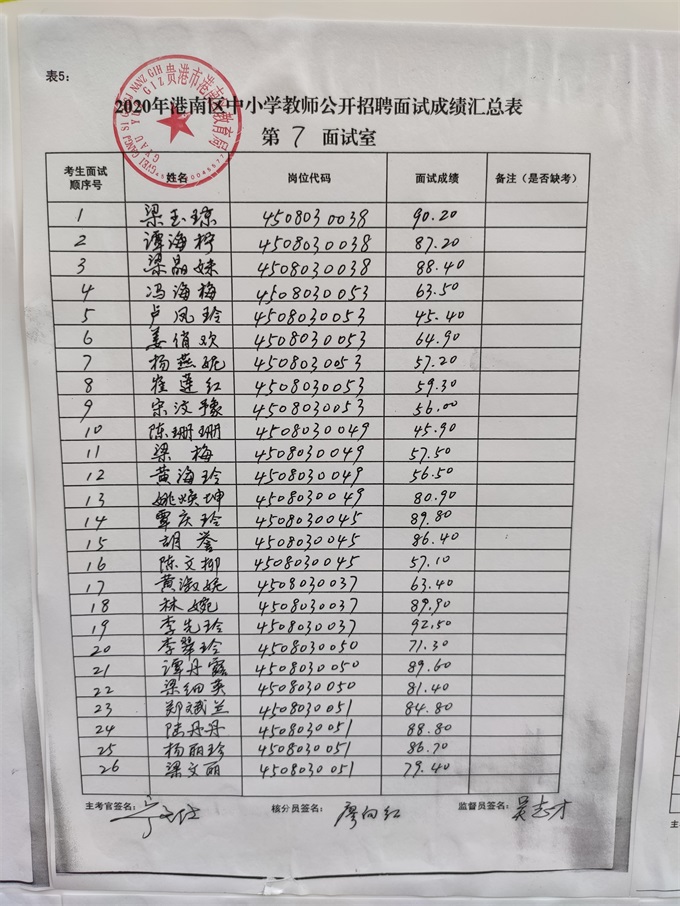 表5:
2020年港南区中小学教师公开招聘面试成绩汇总表
第 7 面试室
考生面试顺序号 姓名 岗位代码 面试成绩 备注（是否缺考）
1 梁玉琼 4508030038 90.20
2 谭海柠 4508030038 87.20
3 梁晶妹 4508030038 88.40
4 冯海梅 4508030053 63.50
5 卢凤玲 4508030053 45.40
6 姜俏欢 4508030053 64.90
7 杨燕妮 4508030053 57.20
8 崔莲红 4508030053 59.30
9 宋汶豫 4508030053 56.00
10 陈珊珊 4508030049 45.90
11 梁梅 4508030049 57.50
12 黄海玲 4508030049 56.50
13 姚焕坤 4508030049 80.90
14 覃庆玲 4508030045 89.80
15 胡誉 4508030045 86.40
16 陈文柳 4508030045 57.10
17 黄淑婉 4508030037 63.40
18 林婉 4508030037 89.90
19 李先玲 4508030037 92.50
20 李翠玲 4508030050 71.30
21 谭丹露 4508030050 89.60
22 梁细英 4508030050 81.40
23 郑斌兰 4508030051 84.80
24 陆丹丹 4508030051 88.80
25 杨丽珍 4508030051 86.70
26 梁文丽 4508030051 79.40
主考官签名: 核分员签名: 廖向红 监督员签名: 吴志才
贵港市港南区教育局